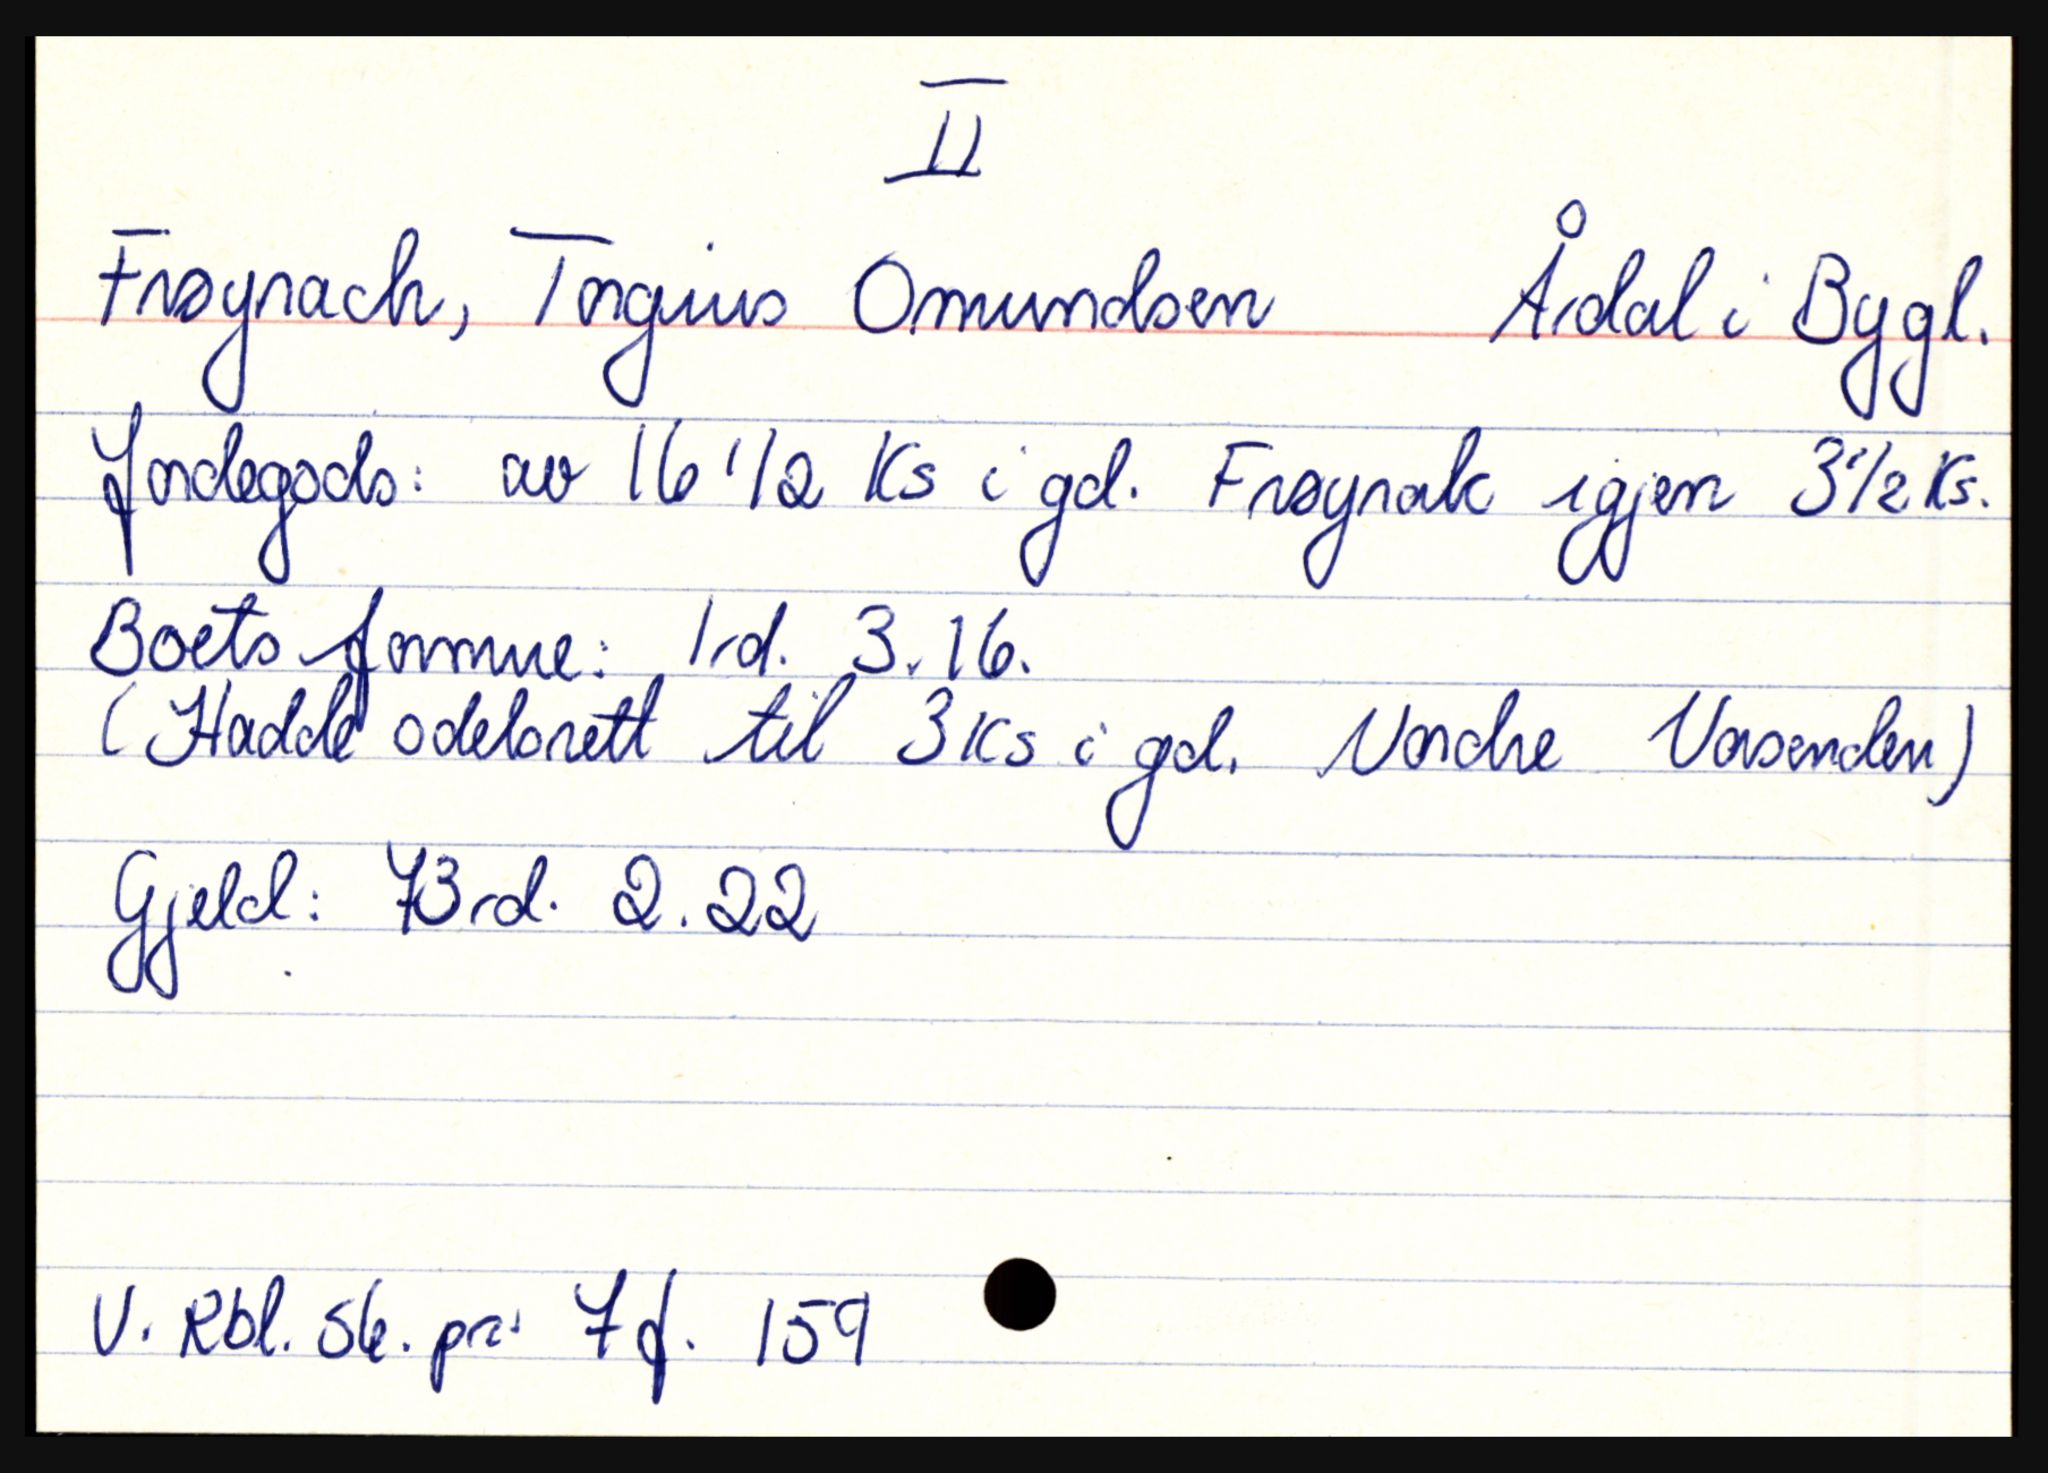 II
Frøyrach, Torgius Omundsen Årdal i Bygl.
Jordegods: av 16 1/2 Ks i gd. Frøyrak igjen 3 1/2 Ks.
Boets formue: 1 rd. 3. 16.
(Hadde odelsrett til 3 Ks i gd. Nordre Vasenden)
Gjeld: 73 rd. 2. 22
V. Rbl. Sk. pr. 7 f. 159